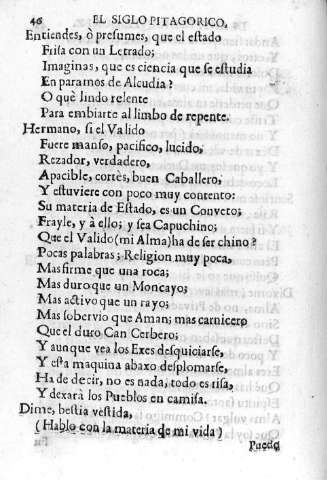 46 EL SIGLO PITAGORICO.
Entiendes, ò presumes, que el estado
Frisa con un Letrado;
Imaginas, que es ciencia que se estudia
En paramos de Alcudia?
O què lindo relente
Para embiarte al limbo de repente.
Hermano, si el Valido
Fuere manso, pacifico, lucido,
Rezador, verdadero,
Apacible, cortès, buen Caballero,
Y estuviere con poco muy contento:
Su materia de Estado, es un Convẽto;
Frayle, y à ello; y sea Capuchino;
Que el Valido (mi Alma) ha de ser chino?
Pocas palabras; Religion muy poca,
Mas firme que una roca;
Mas duro que un Moncayo;
Mas activo que un rayo;
Mas sobervio que Aman; mas carnicero
Que el duro Can Cerbero;
Y aunque vea los Exes desquiciarse,
Y esta maquina abaxo desplomarse,
Ha de decir, no es nada, todo es risa,
Y dexarà los Pueblos en camisa.
Dime, bestia vestida,
(Hablo con la materia de mi vida)
Puedo